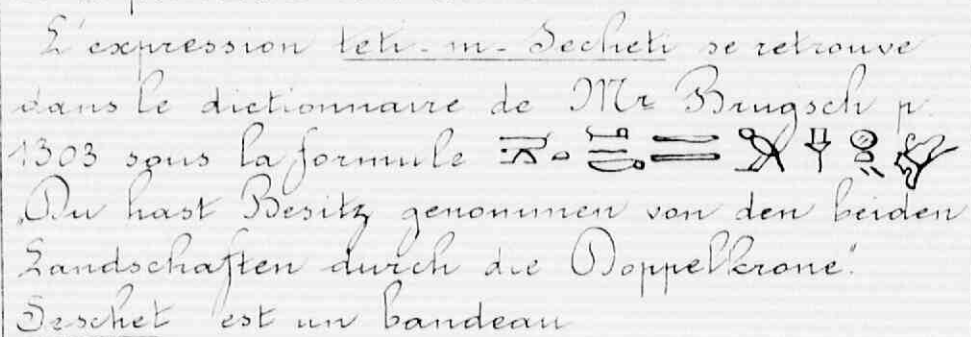 L'expression teti-m-Secheti se retrouve
dans le dictionnaire de Mr Brugsch p.
1303 sous la formule
„Du hast Besitz genommen von den beiden
Landschaften durch die Doppelkrone."
Seschet est un bandeau